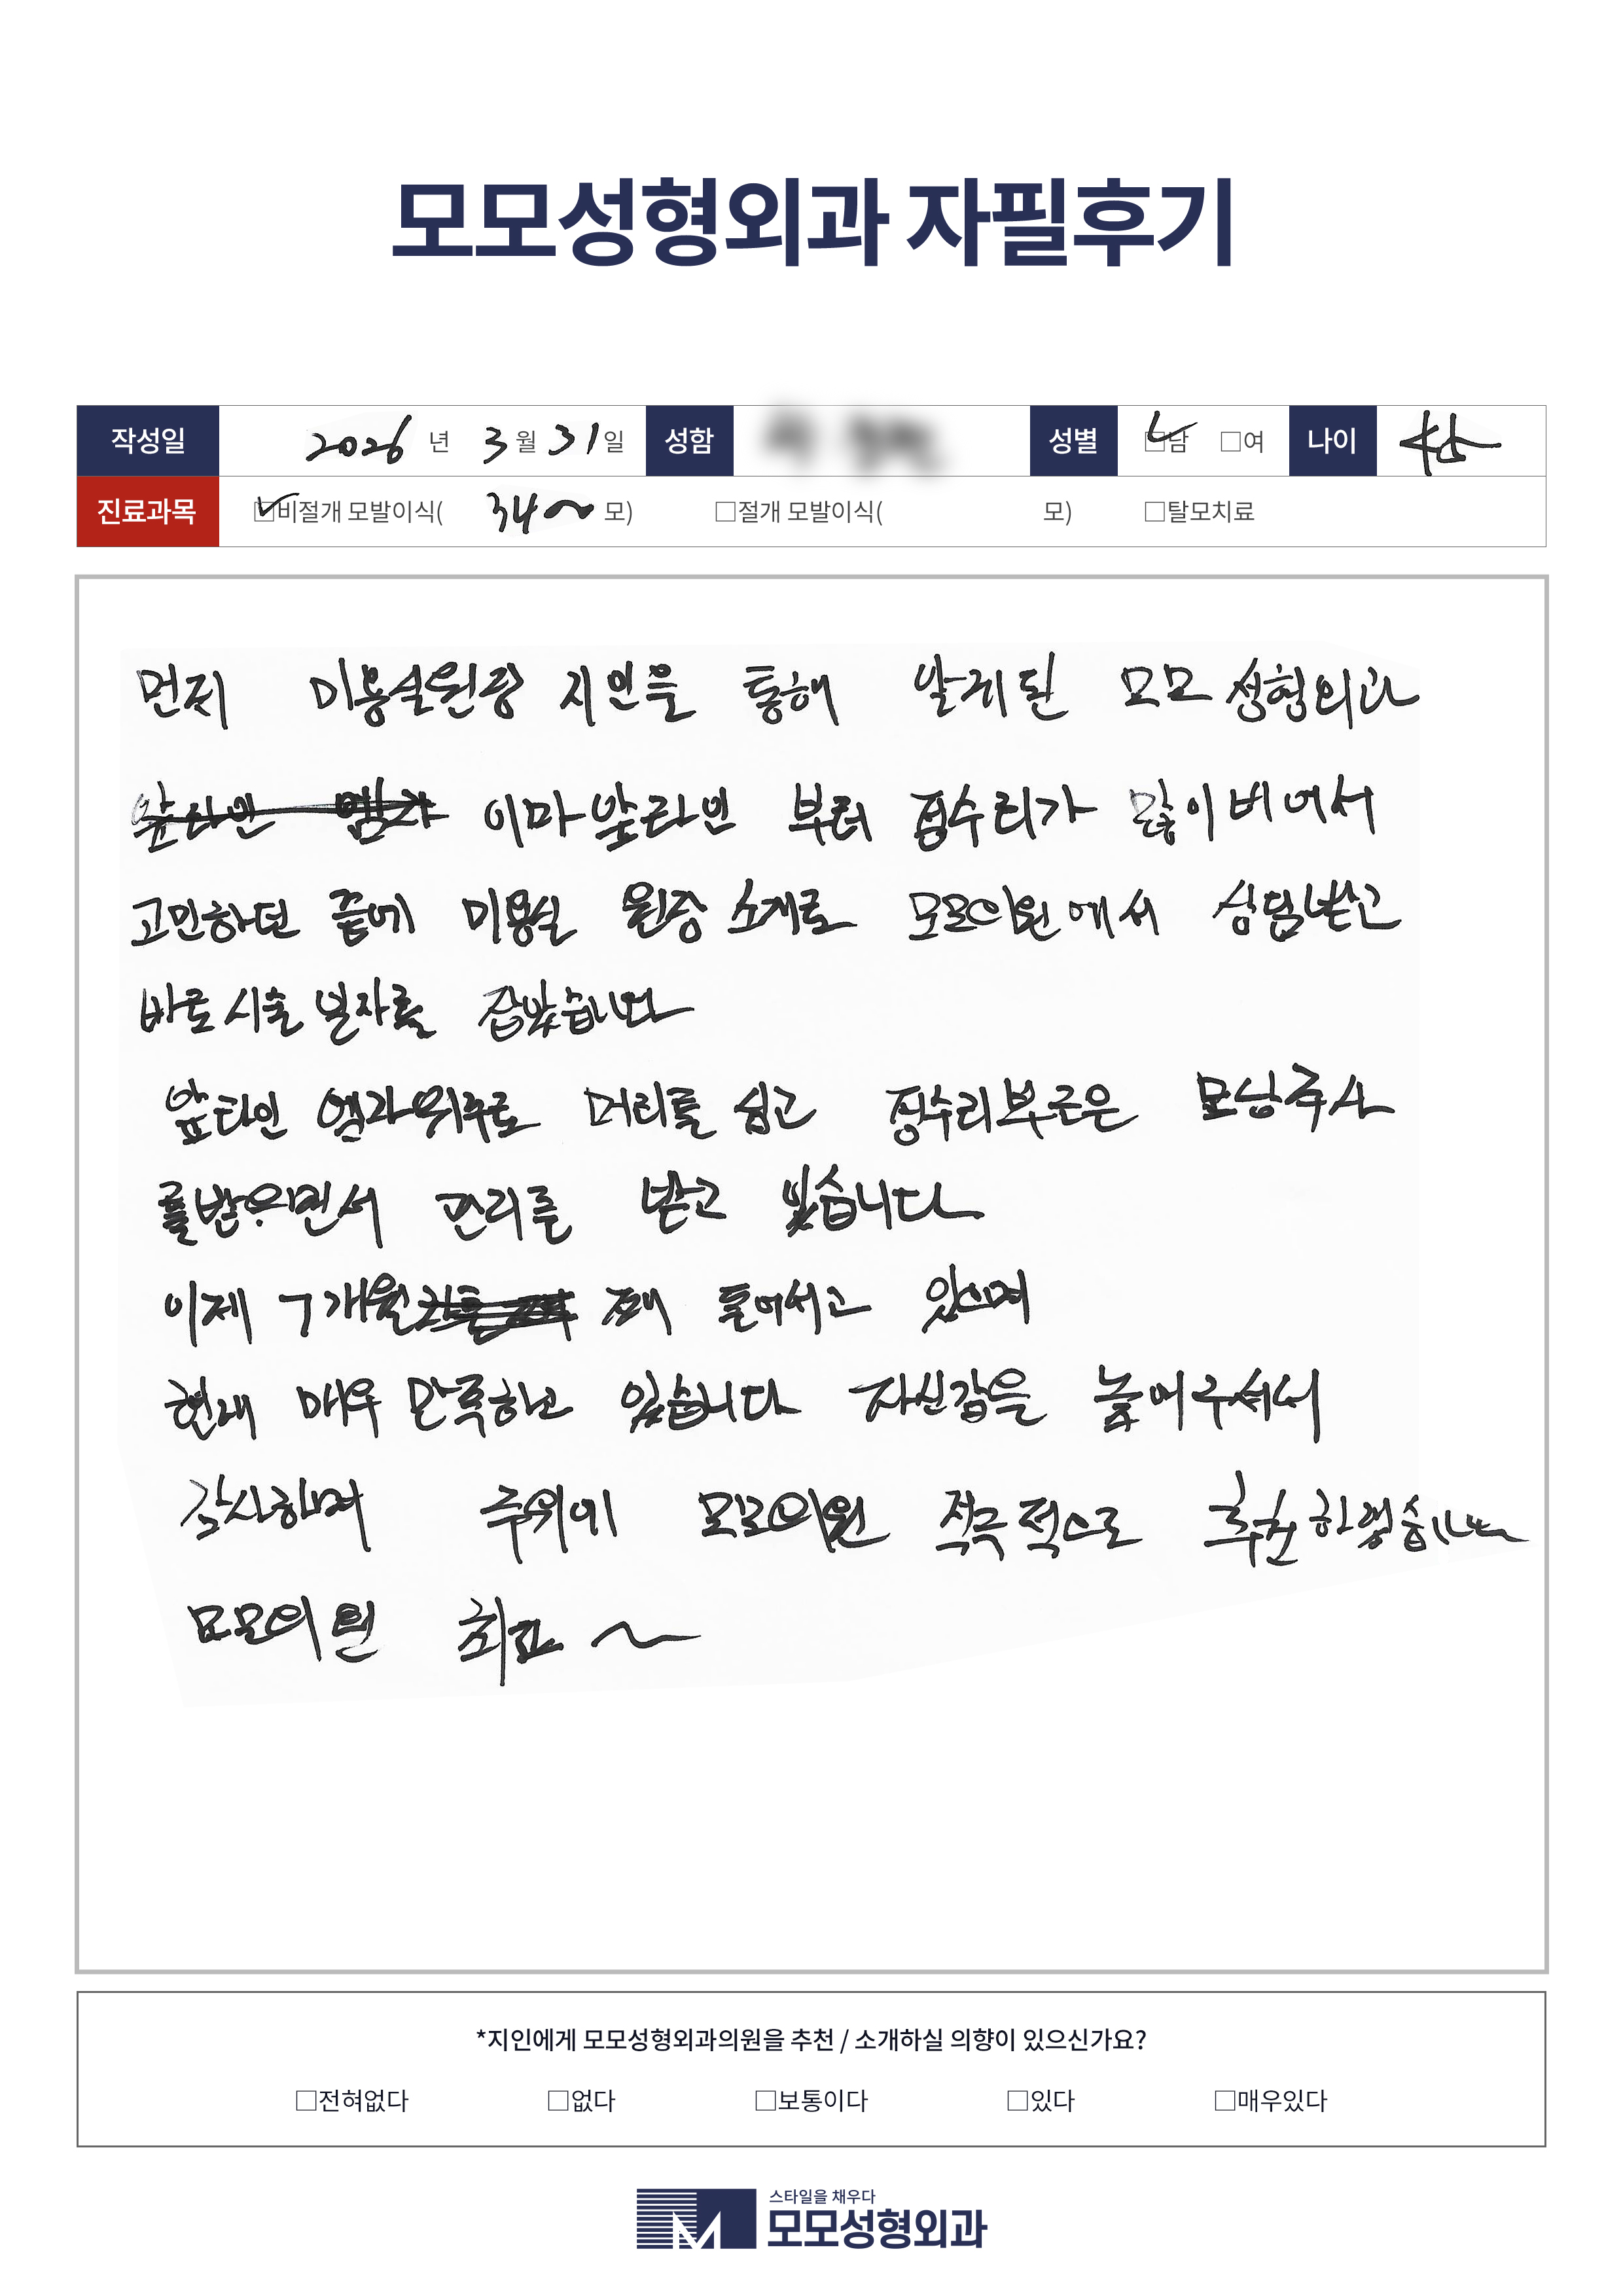 모모성형외과 자필후기
작성일 2026 년 3 월 31 일 성함 성별 □남 □여 나이 45
진료과목 □비절개 모발이식( 34~ 모) □절개 모발이식( 모) □탈모치료
먼저 미용실원장 지인을 통해 알게된 모모 성형외과
앞라인 이마앞라인 부터 정수리가 많이 비어서
고민하던 끝에 미용실 원장 소개로 모모의원에서 상담받고
바로 시술 날자를 잡았습니다
앞라인 엠자위주로 머리를 심고 정수리부근은 모낭주사
를받으면서 관리를 받고 있습니다
이제 7개월 째 들어서고 있으며
현재 매우 만족하고 있습니다 자신감을 높여주셔서
감사하며 주위에 모모의원 적극적으로 추천하겠습니다
모모의원 최고 ~
*지인에게 모모성형외과의원을 추천 / 소개하실 의향이 있으신가요?
□전혀없다 □없다 □보통이다 □있다 □매우있다
스타일을 채우다
모모성형외과